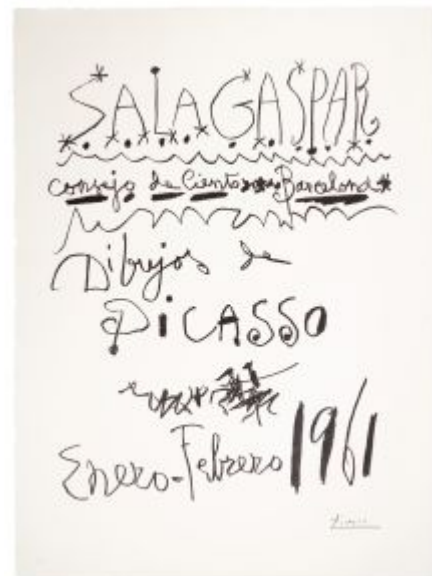 SALA GASPAR
Consejo de Ciento Barcelona
Dibujos de
PICASSO
Enero-Febrero 1961